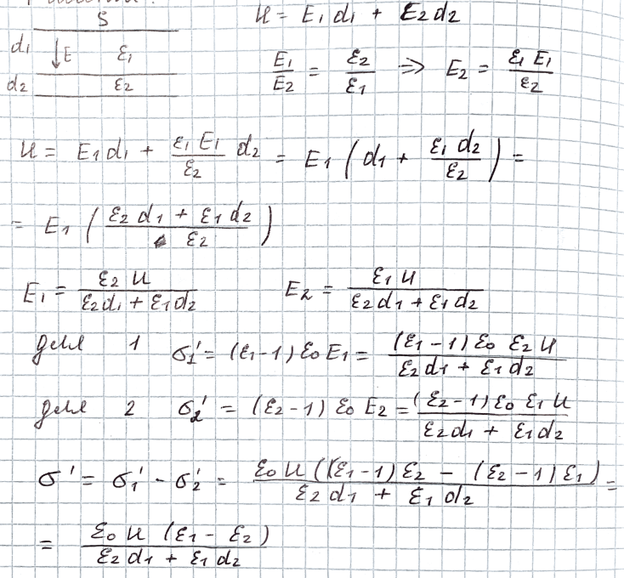 S
U = E₁d₁ + E₂d₂
d₁ ↓E ε₁
d₂ ε₂
E₁/E₂ = ε₂/ε₁ => E₂ = ε₁E₁/ε₂
U = E₁d₁ + (ε₁E₁/ε₂) d₂ = E₁(d₁ + ε₁d₂/ε₂) =
= E₁((ε₂d₁ + ε₁d₂)/ε₂)
E₁ = ε₂U/(ε₂d₁ + ε₁d₂) E₂ = ε₁U/(ε₂d₁ + ε₁d₂)
для 1 σ₁' = (ε₁-1)ε₀E₁ = (ε₁-1)ε₀ε₂U/(ε₂d₁ + ε₁d₂)
для 2 σ₂' = (ε₂-1)ε₀E₂ = (ε₂-1)ε₀ε₁U/(ε₂d₁ + ε₁d₂)
σ' = σ₁' - σ₂' = ε₀U((ε₁-1)ε₂ - (ε₂-1)ε₁)/(ε₂d₁ + ε₁d₂) =
= ε₀U(ε₁-ε₂)/(ε₂d₁ + ε₁d₂)